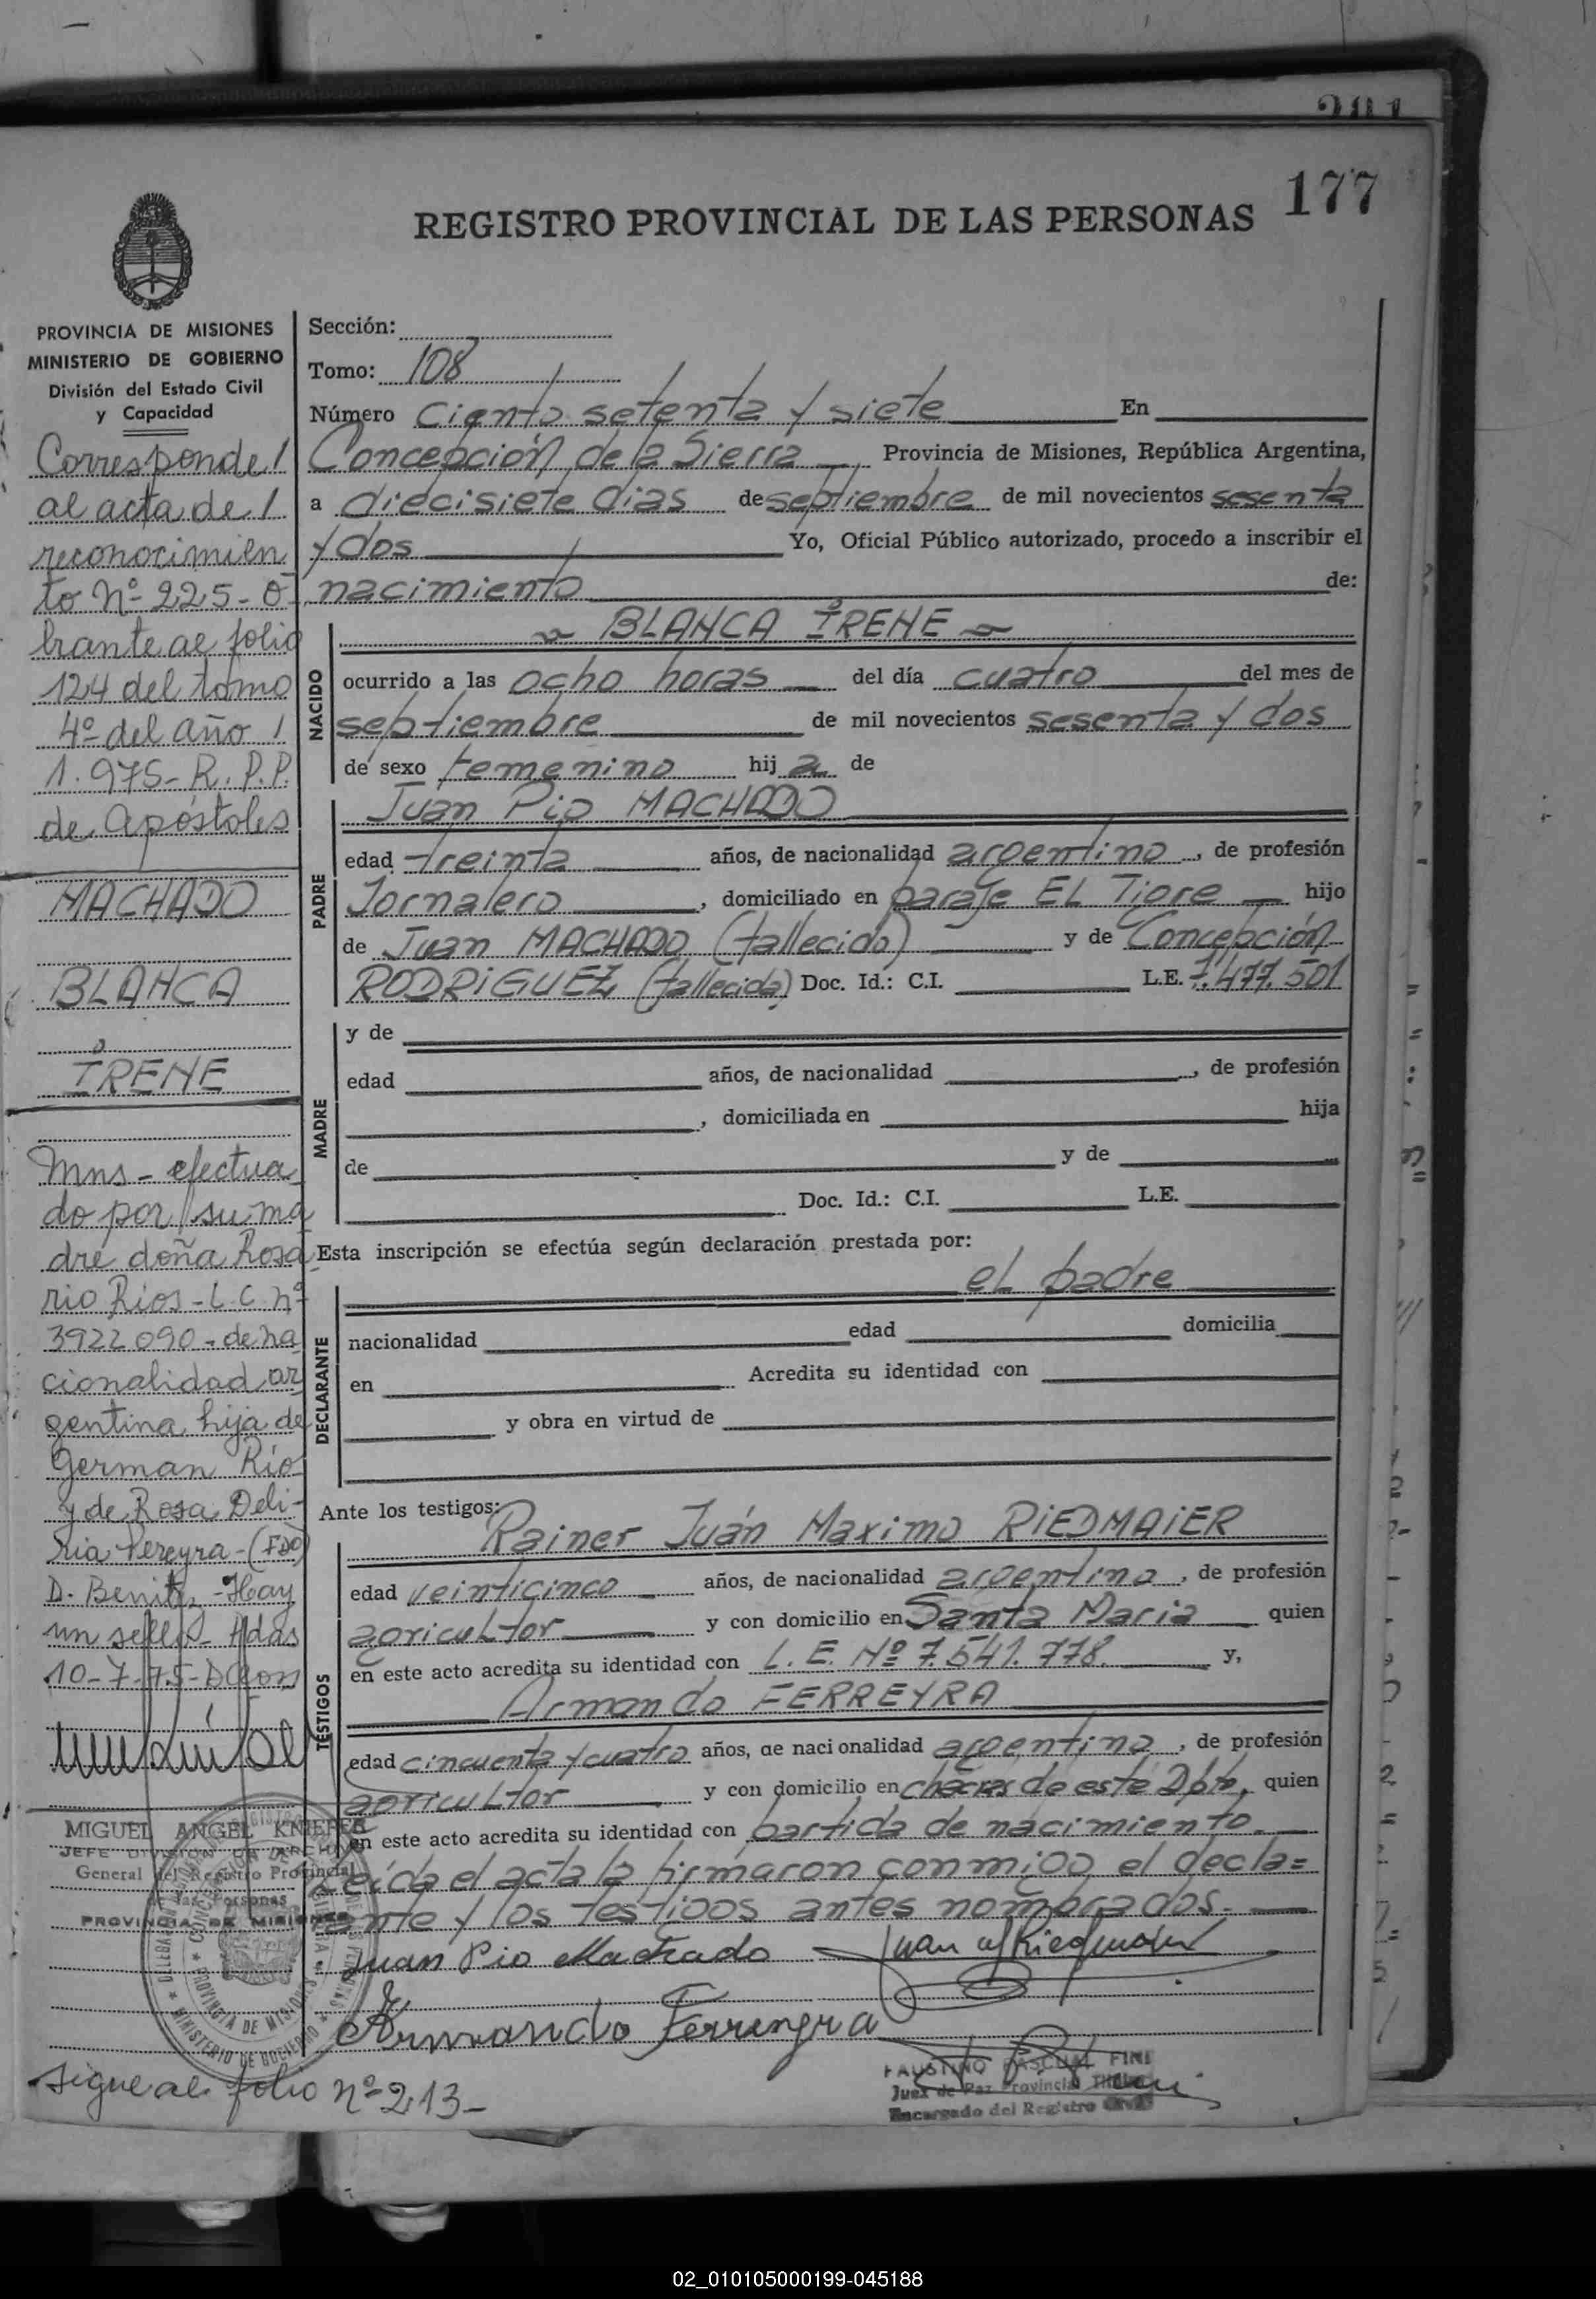 177
REGISTRO PROVINCIAL DE LAS PERSONAS
PROVINCIA DE MISIONES
MINISTERIO DE GOBIERNO
División del Estado Civil
y Capacidad
Corresponde /
al acta de /
reconocimien
to Nº 225- O-
brante al folio
124 del tomo
4º del año /
1.975- R. P. P.
de Apóstoles
MACHADO
BLANCA
IRENE
Mns - efectua
do por su ma
dre doña Rosa
rio Rios - L. C. nº
3922090 - de na
cionalidad ar
gentina hija de
German Rio
y de Rosa Deli-
ria Pereyra - (FDO)
D. Benitez - Hay
un sello - Adas
10-7-75-
MIGUEL ANGEL KNIEFER
JEFE DIVISION ARCHIVO
General del Registro Provincial
de las Personas
PROVINCIA DE MISIONES
Sigue al folio nº 213-
Sección:
Tomo: 108
Número Ciento setenta y siete En
Concepción de la Sierra Provincia de Misiones, República Argentina,
a diecisiete dias de septiembre de mil novecientos sesenta
y dos Yo, Oficial Público autorizado, procedo a inscribir el
nacimiento de:
NACIDO
BLANCA IRENE
ocurrido a las ocho horas del día cuatro del mes de
septiembre de mil novecientos sesenta y dos
de sexo femenino hij a de
PADRE
Juan Pio MACHADO
edad treinta años, de nacionalidad argentino, de profesión
Jornalero, domiciliado en paraje EL Tigre hijo
de Juan MACHADO (fallecido) y de Concepción
RODRIGUEZ (fallecida) Doc. Id.: C.I. L.E. 7.477.501
MADRE
y de
edad años, de nacionalidad , de profesión
, domiciliada en hija
de y de
Doc. Id.: C.I. L.E.
Esta inscripción se efectúa según declaración prestada por:
el padre
DECLARANTE
nacionalidad edad domicilia
en Acredita su identidad con
y obra en virtud de
Ante los testigos:
Rainer Juán Maximo RIEDMAIER
TESTIGOS
edad veinticinco años, de nacionalidad argentino, de profesión
agricultor y con domicilio en Santa Maria quien
en este acto acredita su identidad con L. E. Nº 7.541.778. y,
Armando FERREYRA
edad cincuenta y cuatro años, de nacionalidad argentino, de profesión
agricultor y con domicilio en chacras de este Dpto, quien
en este acto acredita su identidad con partida de nacimiento.
Leida el acta la firmaron conmigo el decla=
rante y los testigos antes nombrados.
Juan Pio Machado
Armando Ferreyra
FAUSTINO PASCUAL FINI
Juez de Paz Provincial Titular
Encargado del Registro Civil
02_010105000199-045188